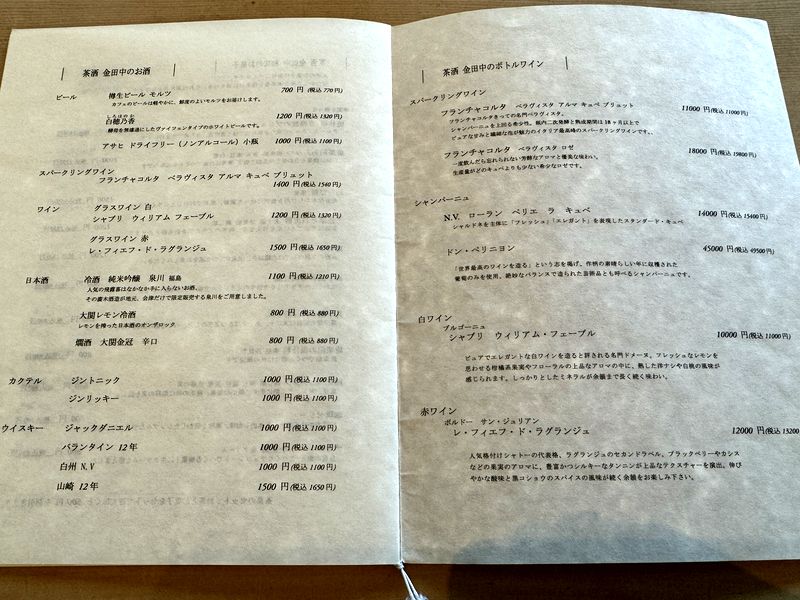 茶酒 金田中のお酒
ビール 樽生ビール モルツ 700 円 (税込 770円)
カフェのビールは軽やかに、鮮度のよいモルツをお届けします。
しろほのか
白穂乃香 1200 円 (税込 1320円)
酵母を無濾過にしたヴァイツェンタイプのホワイトビールです。
アサヒ ドライフリー（ノンアルコール）小瓶 1000 円 (税込 1100円)
スパークリングワイン
フランチャコルタ ベラヴィスタ アルマ キュベ ブリュット
1400 円 (税込 1540円)
ワイン グラスワイン 白
シャブリ ウィリアム フェーブル 1200 円 (税込 1320円)
グラスワイン 赤
レ・フィエフ・ド・ラグランジュ 1500 円 (税込 1650円)
日本酒 冷酒 純米吟醸 泉川 福島 1100 円 (税込 1210円)
人気の飛露喜はなかなか手に入らないお酒。
その廣木酒造が地元、会津だけで限定販売する泉川をご用意しました。
大関レモン冷酒 800 円 (税込 880円)
レモンを搾った日本酒のオンザロック
燗酒 大関金冠 辛口 800 円 (税込 880円)
カクテル ジントニック 1000 円 (税込 1100円)
ジンリッキー 1000 円 (税込 1100円)
ウイスキー ジャックダニエル 1000 円 (税込 1100円)
バランタイン 12年 1000 円 (税込 1100円)
白州 N.V 1000 円 (税込 1100円)
山崎 12年 1500 円 (税込 1650円)
茶酒 金田中のボトルワイン
スパークリングワイン
フランチャコルタ ベラヴィスタ アルマ キュベ ブリュット 11000 円 (税込 11000円)
フランチャコルタきっての名門ベラヴィスタ。
シャンパーニュを上回る希少性。瓶内二次発酵と熟成期間は18ヶ月以上で
ピュアな甘みと繊細な泡が魅力のイタリア最高峰のスパークリングワインです。
フランチャコルタ ベラヴィスタ ロゼ 18000 円 (税込 19800円)
一度飲んだら忘れられない芳醇なアロマと優美な味わい。
生産量がどのキュベよりも少ない希少なロゼです。
シャンパーニュ
N.V. ローラン ペリエ ラ キュベ 14000 円 (税込 15400円)
シャルドネを主体に「フレッシュ」「エレガント」を表現したスタンダード・キュベ
ドン・ペリニヨン 45000 円 (税込 49500円)
「世界最高のワインを造る」という志を掲げ、作柄の素晴らしい年に収穫された
葡萄のみを使用。絶妙なバランスで造られた芸術品とも呼べるシャンパーニュです。
白ワイン
ブルゴーニュ
シャブリ ウィリアム・フェーブル 10000 円 (税込 11000円)
ピュアでエレガントな白ワインを造ると評される名門ドメーヌ。フレッシュなレモンを
思わせる柑橘系果実やフローラルの上品なアロマの中に、熟した洋ナシや白桃の風味が
感じられます。しっかりとしたミネラルが余韻まで長く続く味わい。
赤ワイン
ボルドー サン・ジュリアン
レ・フィエフ・ド・ラグランジュ 12000 円 (税込 13200
人気格付けシャトーの代表格、ラグランジュのセカンドラベル。ブラックベリーやカシス
などの果実のアロマに、豊富かつシルキーなタンニンが上品なテクスチャーを演出。伸び
やかな酸味と黒コショウのスパイスの風味が続く余韻をお楽しみ下さい。